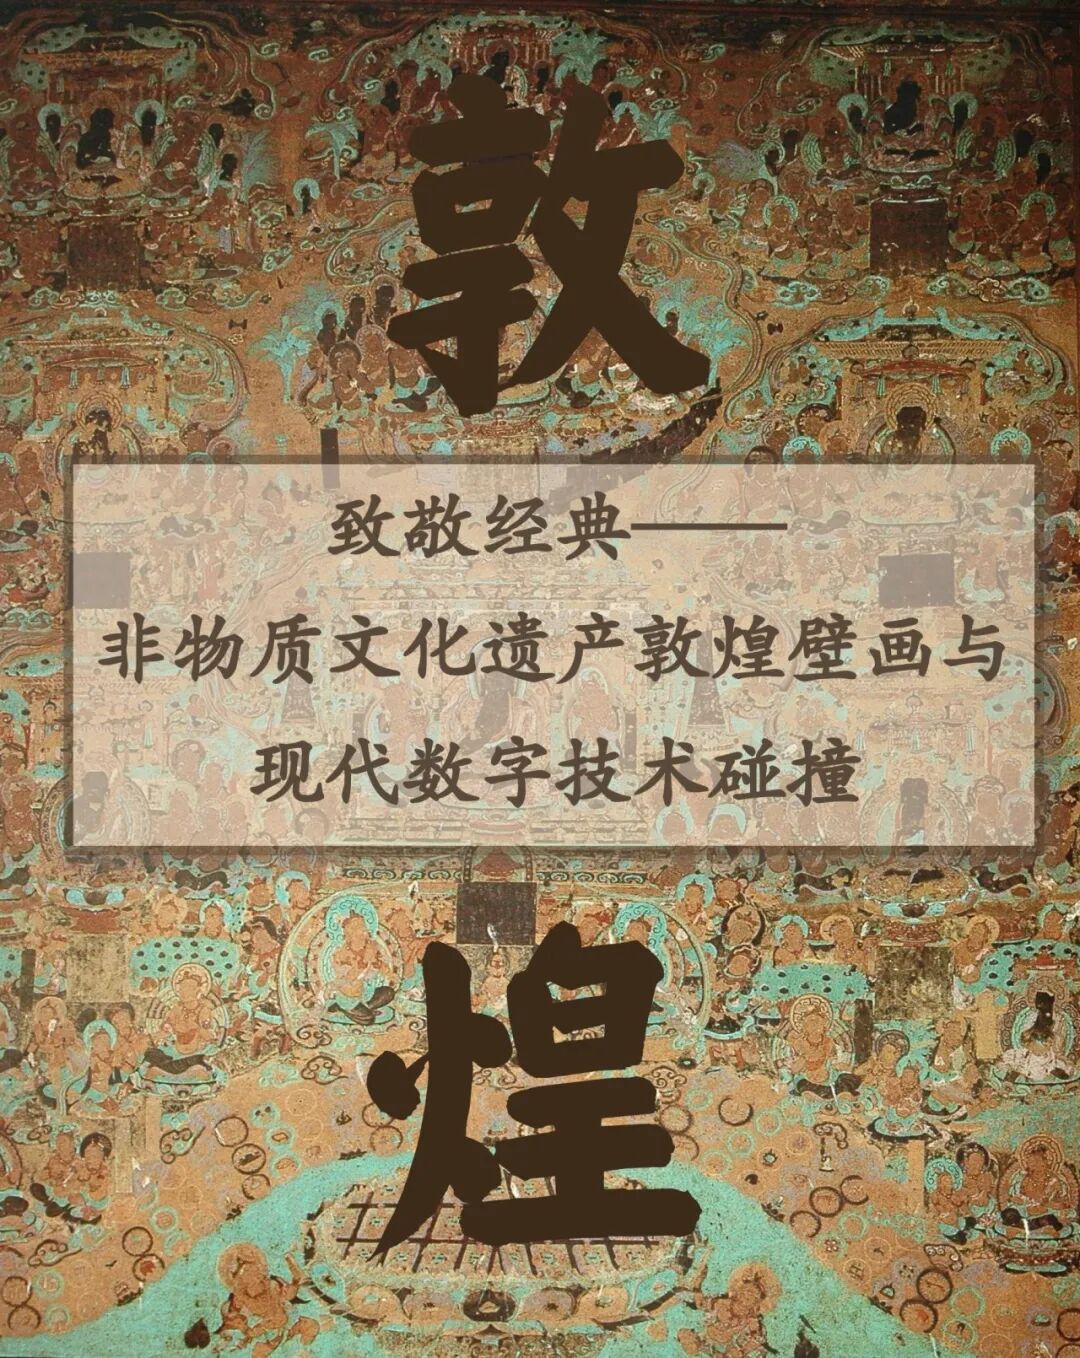 敦
致敬经典——
非物质文化遗产敦煌壁画与
现代数字技术碰撞
煌